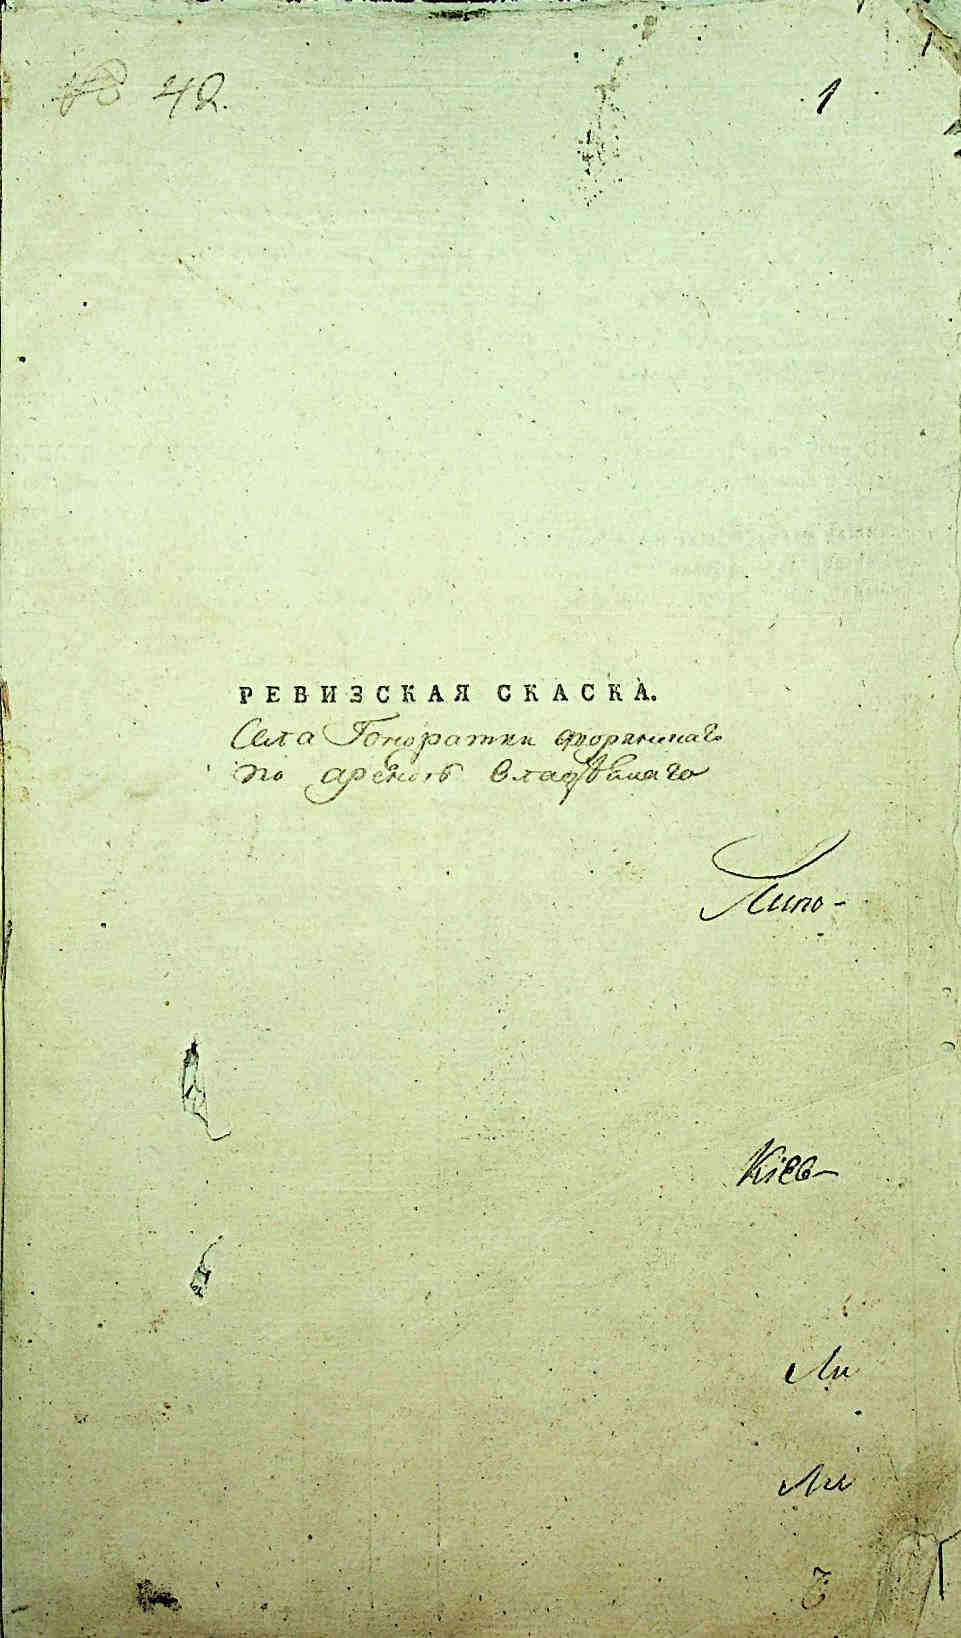 42.
1
РЕВИЗСКАЯ СКАСКА.
Села Гоноратки дворяниномъ
по арендѣ владѣемаго
Липо-
Кіев-
Ли
Ли